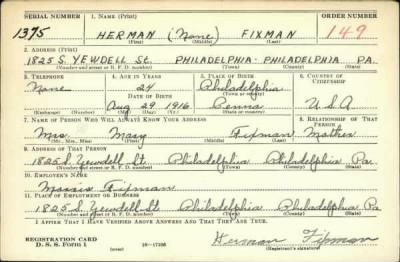 SERIAL NUMBER 1. NAME (Print) ORDER NUMBER
1375 HERMAN (None) FIXMAN 149
(First) (Middle) (Last)
2. ADDRESS (Print)
1825 S. YEWDELL St. PHILADELPHIA PHILADELPHIA PA.
(Number and street or R. F. D. number) (Town) (County) (State)
3. TELEPHONE 4. AGE IN YEARS 5. PLACE OF BIRTH 6. COUNTRY OF CITIZENSHIP
None 24 Philadelphia
DATE OF BIRTH (Town or county)
Aug 29 1916 Penna U.S.A
(Exchange) (Number) (Mo.) (Day) (Yr.) (State or country)
7. NAME OF PERSON WHO WILL ALWAYS KNOW YOUR ADDRESS 8. RELATIONSHIP OF THAT PERSON
Mrs. Mary Fixman Mother
(Mr., Mrs., Miss) (First) (Middle) (Last)
9. ADDRESS OF THAT PERSON
1825 S Yewdell St. Philadelphia Philadelphia Pa.
(Number and street or R. F. D. number) (Town) (County) (State)
10. EMPLOYER'S NAME
Morris Fixman
11. PLACE OF EMPLOYMENT OR BUSINESS
1825 S. Yewdell St Philadelphia Philadelphia Pa.
(Number and street or R. F. D. number) (Town) (County) (State)
I AFFIRM THAT I HAVE VERIFIED ABOVE ANSWERS AND THAT THEY ARE TRUE.
REGISTRATION CARD
D. S. S. FORM 1 (over) 16—17105 Herman Fixman
(Registrant's signature)